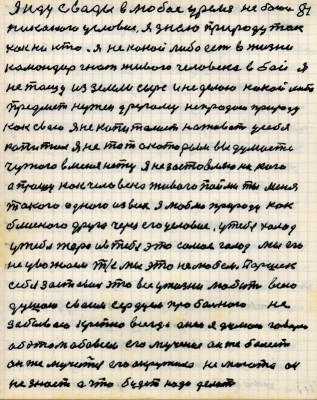 Я иду с вады в любое время не боюсь 81
никакого условия, я знаю природу так
как ни кто. я не какой либо есть в жизни
командир гнать живого человека в бой я
не тащу из земли сырье и не делаю какой либо
предмет нужен другому не продаю природу
как свою я не капиталист наживать себя
капитал я не тот а котором вы думаете
чужого в меня нету я не заставляю ни кого
а прошу как человека живого пайми ты меня
такого одного из всех я люблю природу как
близкого друга через его условие, у тебя холод
у тебя жара и в тебя это самое голод мы его
не уважаем т/е мы это не любем. Паршек
себя заставил это все у жизни любить всю
душою своим сердцем про больного не
забываю крепко всегда а нем я думаю говорю
аб этом а бавсем его мучения он же болеет
он же мучется его окружило не могота он
не знает а что будет надо делать